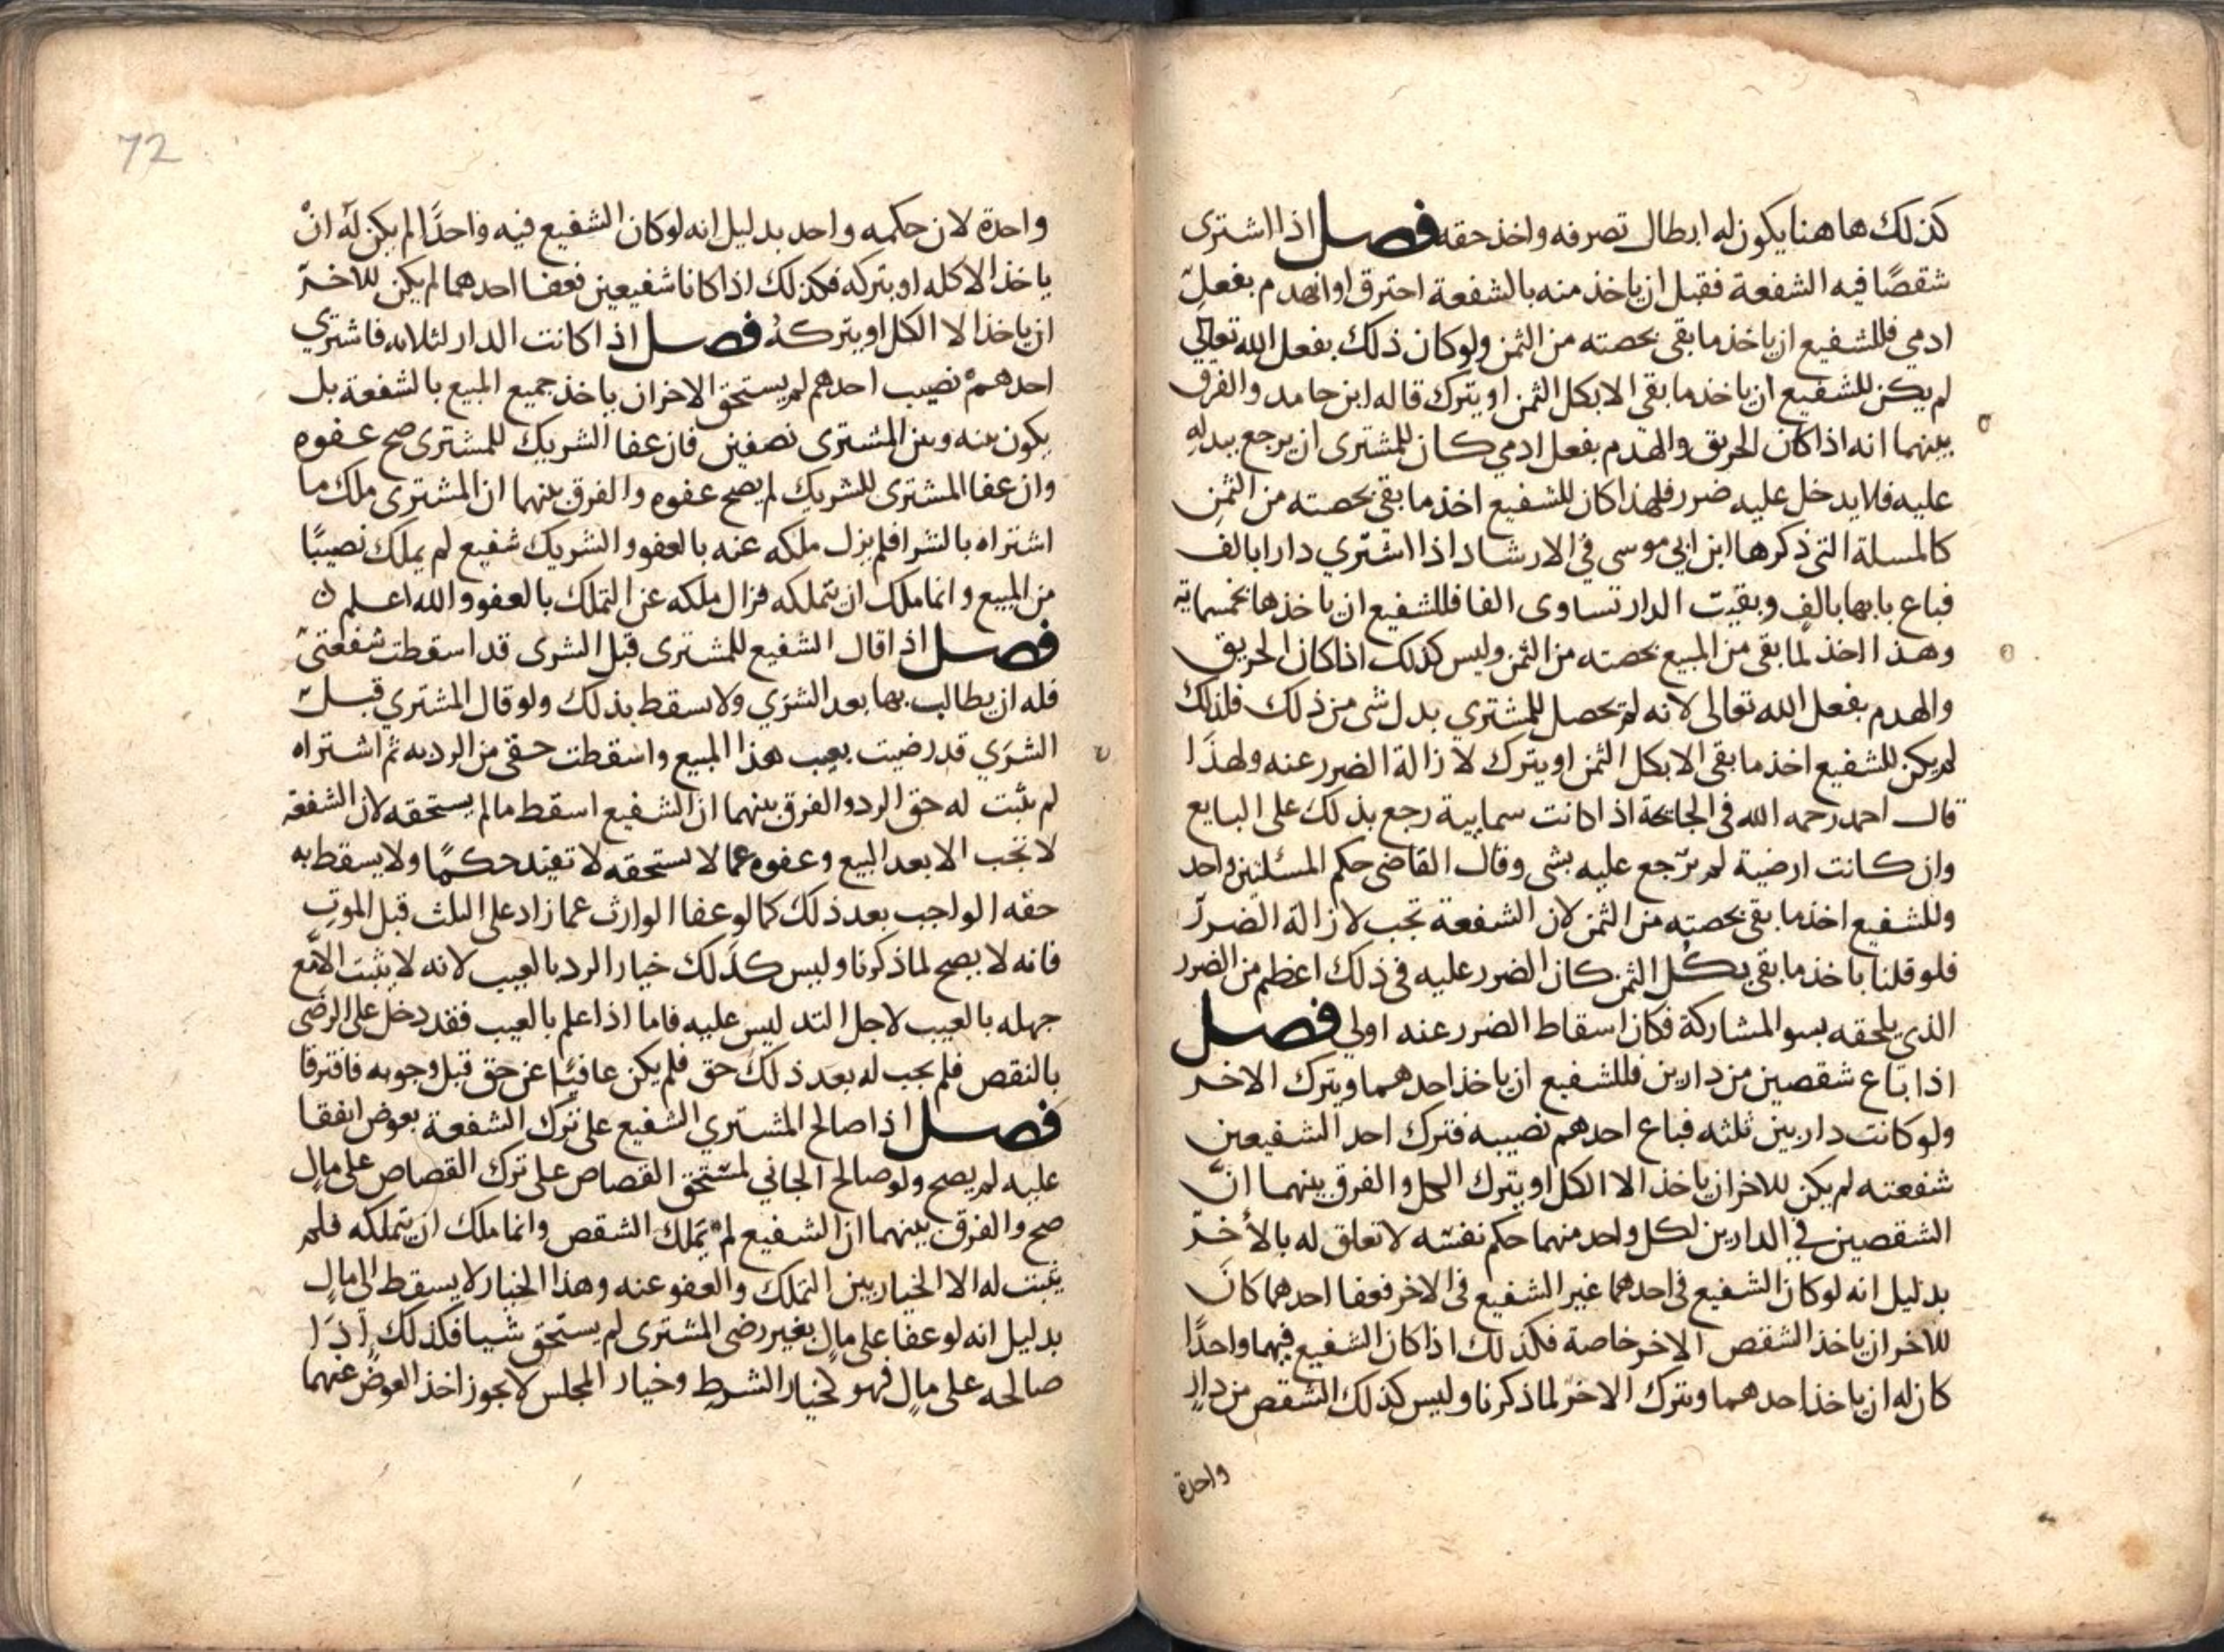 كذلك هاهنا يكون له ابطال تصرفه واخذ حقه فصل اذا اشترى
شقصًا فيه الشفعة فقبل ان ياخذ منه بالشفعة احترق او انهدم بفعل
ادمي فللشفيع ان ياخذ ما بقى بحصته من الثمن ولو كان ذلك بفعل الله تعالي
لم يكن للشفيع ان ياخذ ما بقى الا بكل الثمن او يترك قاله ابن حامد والفرق
بينهما انه اذا كان الحريق والهدم بفعل ادمي كان للمشترى ان يرجع ببدله
عليه فلا يدخل عليه ضرر فلهذا كان للشفيع اخذ ما بقى بحصته من الثمن
كالمسلة التى ذكرها ابن ابي موسى في الارشاد اذا اشتري دارا بالف
فباع بابها بالف وبقيت الدار تساوى الفا فللشفيع ان ياخذها بخمسماية
وهذا اخذ لما بقى من المبيع بحصته من الثمن وليس كذلك اذا كان الحريق
والهدم بفعل الله تعالى لانه لم يحصل للمشتري بدل شى من ذلك فلذلك
لم يكن للشفيع اخذ ما بقى الا بكل الثمن او يترك لازالة الضرر عنه ولهذا
قال احمد رحمه الله فى الجايحة اذا كانت سمايية رجع بذلك على البايع
وان كانت ارضية لم يرجع عليه بشى وقال القاضى حكم المسئلتين واحد
وللشفيع اخذ ما بقى بحصته من الثمن لان الشفعة تجب لازالة الضرر
فلو قلنا ياخذ ما بقى بكل الثمن كان الضرر عليه فى ذلك اعظم من الضرر
الذي يلحقه بسو المشاركة فكان اسقاط الضرر عنه اولي فصل
اذا باع شقصين من دارين فللشفيع ان ياخذ احدهما ويترك الاخر
ولو كانت دار بين ثلثه فباع احدهم نصيبه فترك احد الشفيعين
شفعته لم يكن للاخر ان ياخذ الا الكل او يترك الكل والفرق بينهما ان
الشقصين في الدارين لكل واحد منهما حكم نفسه لا تعلق له بالأخر
بدليل انه لو كان الشفيع فى احدهما غير الشفيع فى الاخر فعفا احدهما كان
للاخر ان ياخذ الشقص الاخر خاصة فكذلك اذا كان الشفيع فيهما واحدًا
كان له ان ياخذ احدهما ويترك الاخر لما ذكرنا وليس كذلك الشقص من دار
واحدة
72
واحدة لان حكمه واحد بدليل انه لو كان الشفيع فيه واحدًا لم يكن له ان
ياخذ الا كله او يتركه فكذلك اذا كانا شفيعين فعفا احدهما لم يكن للاخر
ان ياخذ الا الكل او يتركه فصل اذا كانت الدار لثلاثه فاشتري
احدهم نصيب احدهم لم يستحق الاخر ان ياخذ جميع المبيع بالشفعة بل
يكون بينه وبين المشترى نصفين فان عفا الشريك للمشترى صح عفوه
وان عفا المشترى للشريك لم يصح عفوه والفرق بينهما ان المشترى ملك ما
اشتراه بالشرا فلم يزل ملكه عنه بالعفو والشريك شفيع لم يملك نصيبًا
من المبيع وانما ملك ان يتملكه فزال ملكه عن التملك بالعفو والله اعلم
فصل اذا قال الشفيع للمشترى قبل الشرى قد اسقطت شفعتى
فله ان يطالب بها بعد الشرَي ولا يسقط بذلك ولو قال المشتري قبل
الشرَي قد رضيت بعيب هذا المبيع واسقطت حقى من الرد به ثم اشتراه
لم يثبت له حق الرد والفرق بينهما ان الشفيع اسقط ما لم يستحقه لان الشفعة
لا تجب الا بعد البيع وعفوه عما لا يستحقه لا تفيد حكمًا ولا يسقط به
حقه الواجب بعد ذلك كما لو عفا الوارث عما زاد على الثلث قبل الموت
فانه لا يصح لما ذكرنا وليس كذلك خيار الرد بالعيب لانه لا يثبت الا مع
جهله بالعيب لاجل التدليس عليه فاما اذا علم بالعيب فقد دخل على الرضى
بالنقص فلم يجب له بعد ذلك حق فلم يكن عافيًا عن حق قبل وجوبه فافترقا
فصل اذا صالح المشتري الشفيع على ترك الشفعة بعوض اتفقا
عليه لم يصح ولو صالح الجاني لمستحق القصاص على ترك القصاص على مال
صح والفرق بينهما ان الشفيع لم يملك الشقص وانما ملك ان يتملكه فلم
يثبت له الا الخيار بين التملك والعفو عنه وهذا الخيار لا يسقط الى مال
بدليل انه لو عفا على مال بغير رضى المشترى لم يستحق شيا فكذلك اذا
صالحه على مال فهو كخيار الشرط وخيار المجلس لا يجوز اخذ العوض عنهما